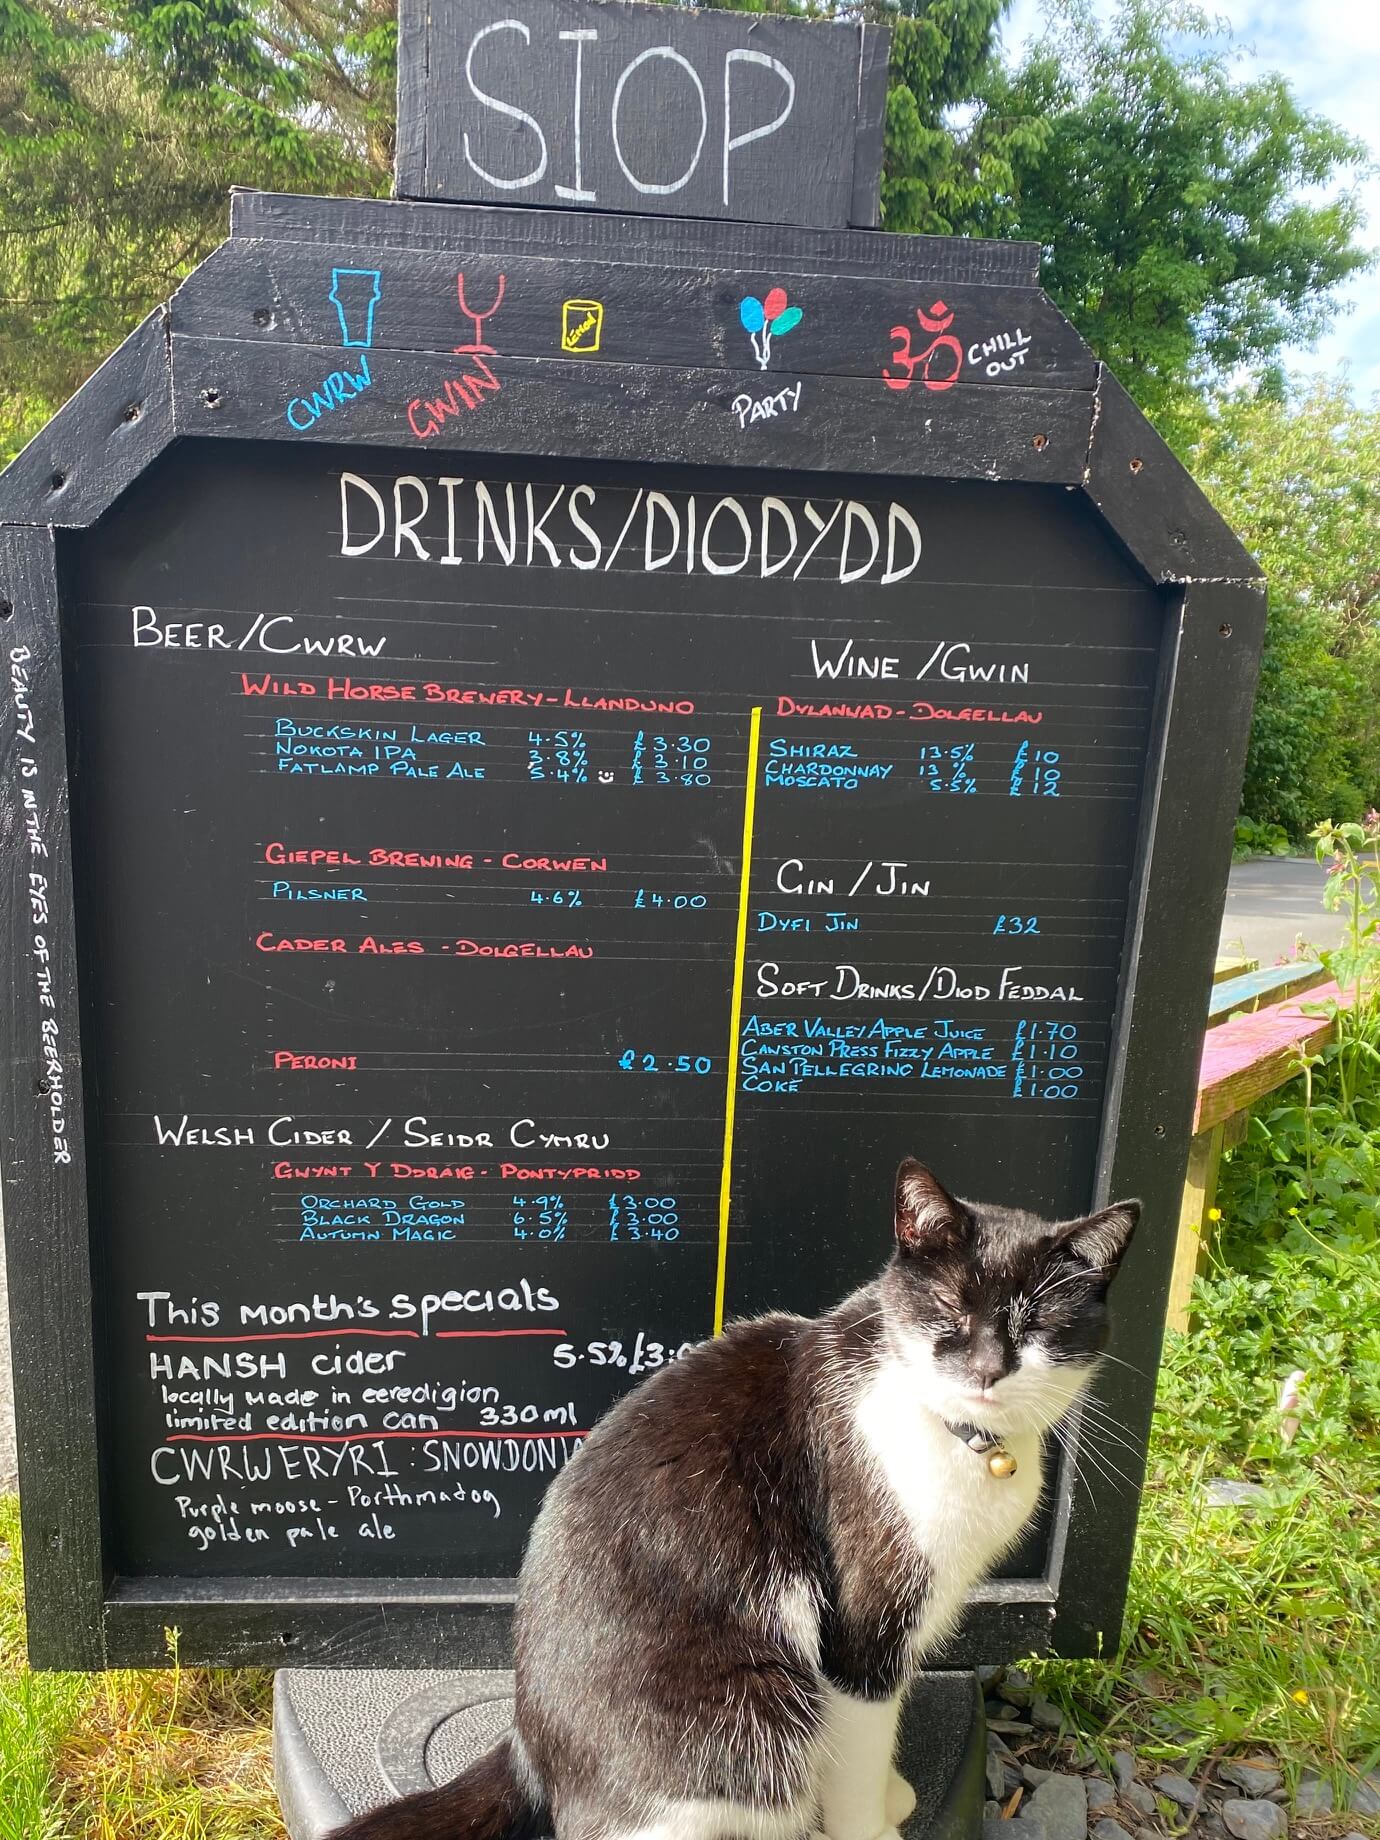 SIOP
CWRW GWIN LEMON PARTY CHILL OUT
DRINKS/DIODYDD
BEER/CWRW
WILD HORSE BREWERY-LLANDUNO
BUCKSKIN LAGER 4.5% £3.30
NOKOTA IPA 3.8% £3.10
FATLAMP PALE ALE 5.4% £3.80
GIEPEL BREWING - CORWEN
PILSNER 4.6% £4.00
CADER ALES - DOLGELLAU
PERONI £2.50
WELSH CIDER / SEIDR CYMRU
GWYNT Y DDRAIG - PONTYPRIDD
ORCHARD GOLD 4.9% £3.00
BLACK DRAGON 6.5% £3.00
AUTUMN MAGIC 4.0% £3.40
This month's specials
HANSH cider 5.5% £3.
locally made in ceredigion
limited edition can 330ml
CWRW ERYRI : SNOWDONIA
Purple moose - Porthmadog
golden pale ale
WINE /GWIN
DYLANWAD - DOLGELLAU
SHIRAZ 13.5% £10
CHARDONNAY 13 % £10
MOSCATO 5.5% £12
GIN / JIN
DYFI JIN £32
SOFT DRINKS/DIOD FEDDAL
ABER VALLEY APPLE JUICE £1.70
CAWSTON PRESS FIZZY APPLE £1.10
SAN PELLEGRINO LEMONADE £1.00
COKE £1.00
BEAUTY IS IN THE EYES OF THE BEERHOLDER